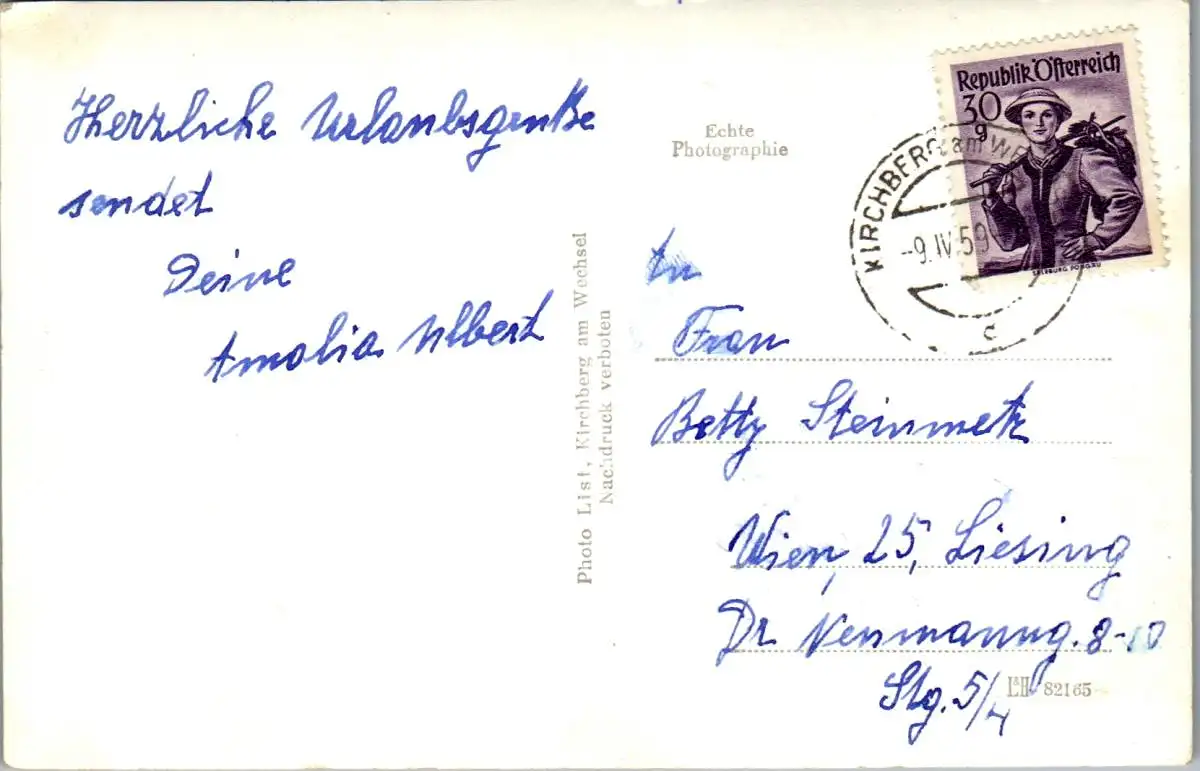 Herzliche Urlaubsgrüße
sendet
Deine
Amalia Ulbert
Echte
Photographie
Photo List, Kirchberg am Wechsel
Nachdruck verboten
Republik Österreich
30
g
SALZBURG PONGAU
KIRCHBERG am WE
-9.IV.59
c
An
Frau
Betty Steinmetz
Wien, 25, Liesing
Dr Neumanng. 8-10
Stg. 5/4
L&H 82165